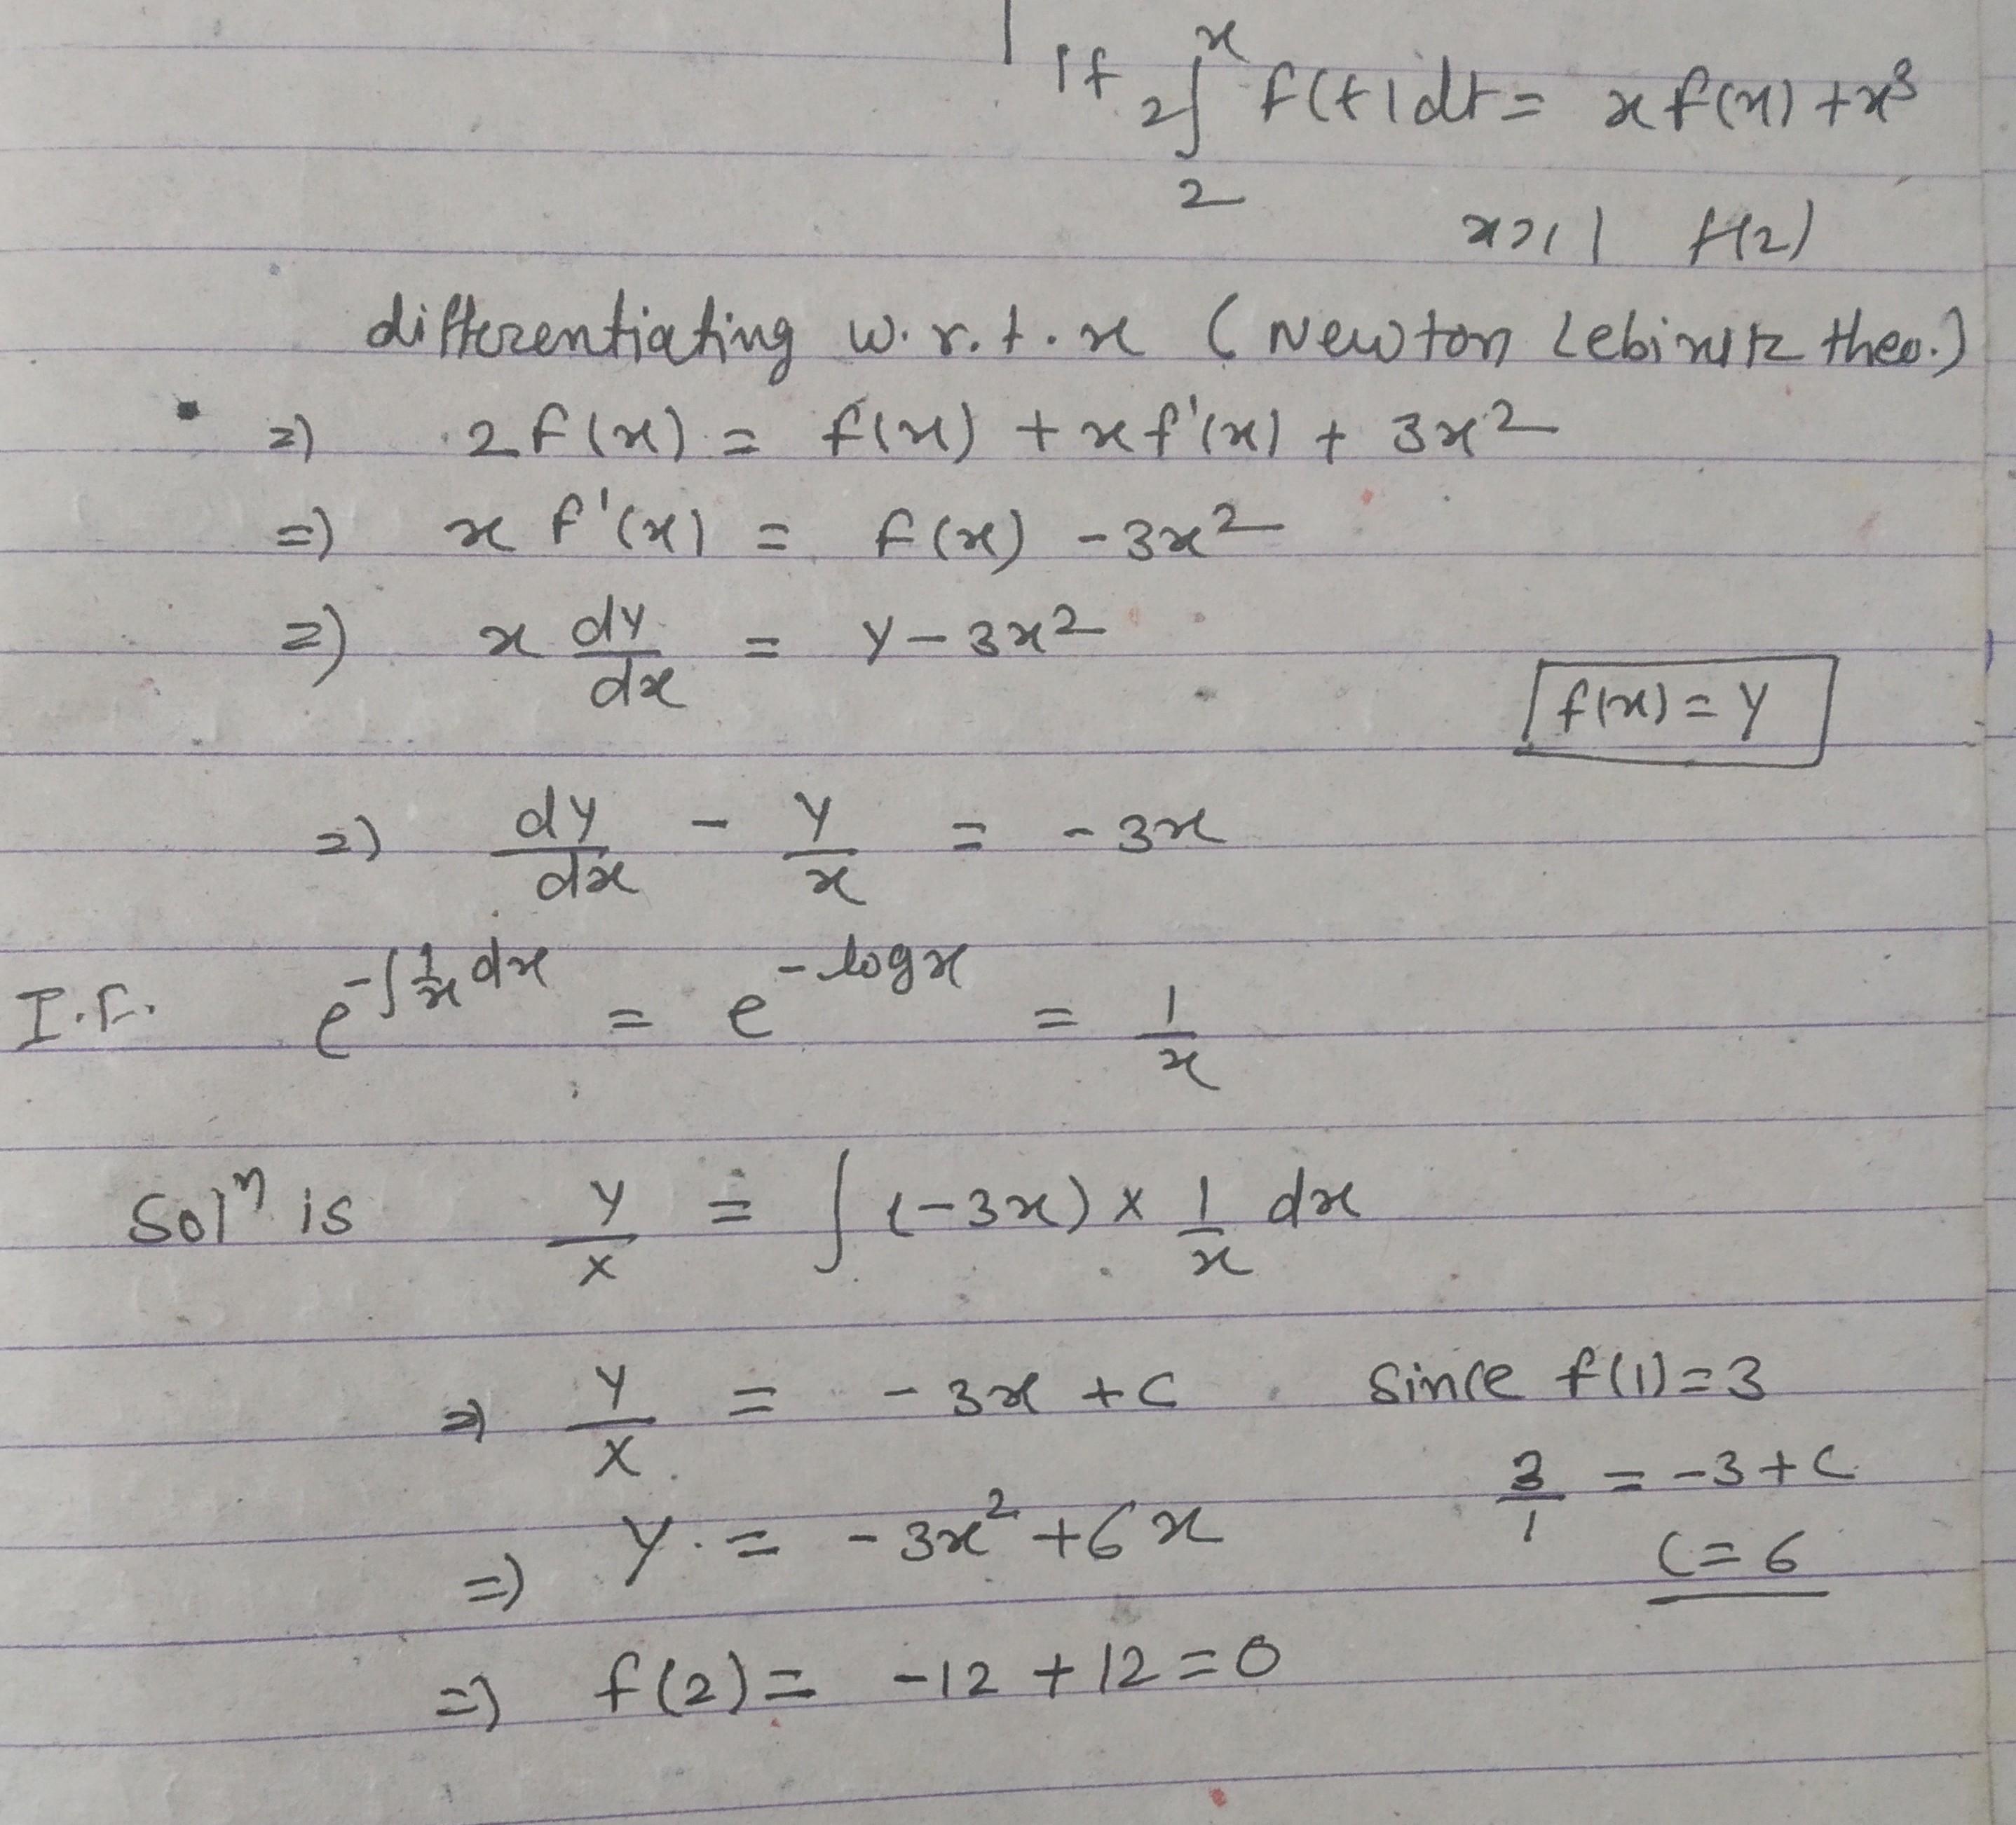 If 2∫₂ˣ f(t)dt = x f(x) + x³
x>,1 f(2)
differentiating w.r.t. x (Newton Lebinitz theo.)
⇒ 2f(x) = f(x) + xf'(x) + 3x²
⇒ x f'(x) = f(x) - 3x²
⇒ x dy/dx = y - 3x²
f(x) = y
⇒ dy/dx - y/x = -3x
I.F. e^(-∫ 1/x dx) = e^(-log x) = 1/x
Solⁿ is y/x = ∫ (-3x) × 1/x dx
⇒ y/x = -3x + c since f(1) = 3
3/1 = -3 + c
⇒ y = -3x² + 6x
c = 6
⇒ f(2) = -12 + 12 = 0